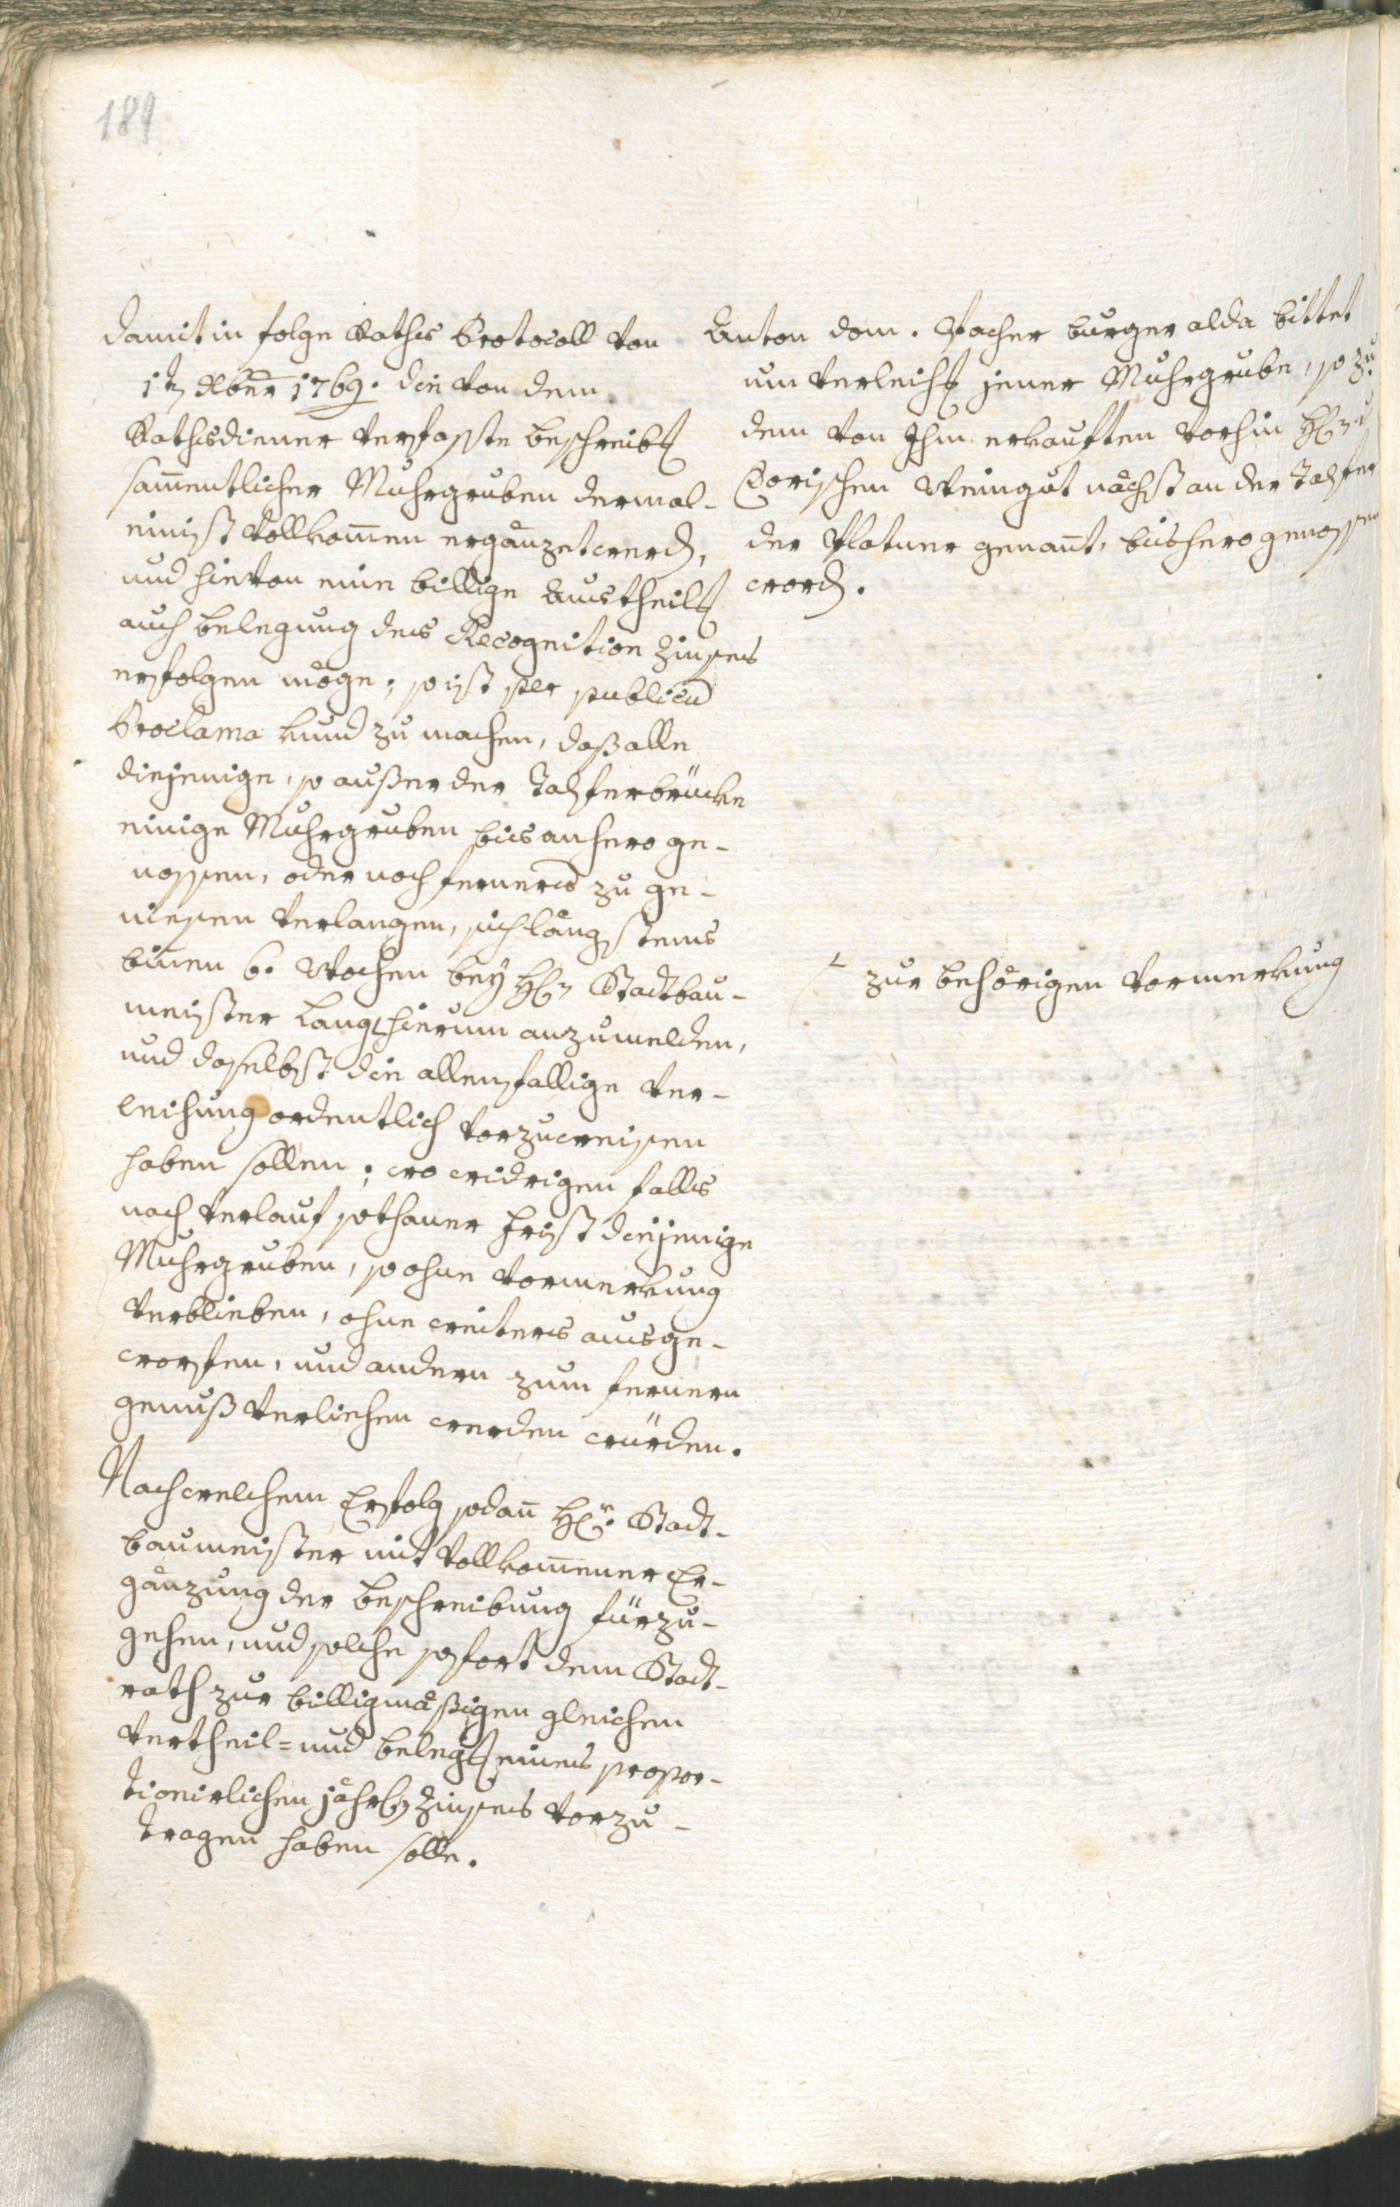 189
damit in folge Raths Protocoll von
1t 10ber 1769. die von dem
Rathsdiener verfasste beschreibg
sam̄entlicher Muhrgruben dermal-
einist vollkom̄en ergänzet werdn,
und hievon eine billige Austheilg
auch belegung des Recognition Zinses
erfolgen möge; so ist per publicū
Proclama kund zu machen, daß alle
diejenige, so außer der Talferbrücke
einige Muhrgruben bis anhero ge-
nossen, oder noch ferners zu ge-
niesen verlangen, sich längstens
bin̄en 6. Wochen bey Hrn Stadtbau-
meister Lang hierum anzumelden,
und daselbst die allenfallige Ver-
leihung ordentlich vorzuweisen
haben sollen; wo widrigen falls
nach verlauf sothaner Frist diejenige
Muhrgruben, so ohne Vormerkung
verblieben, ohne weiters ausge-
worfen, und andern zum fernern
genuß verliehen werden würden.
Nach welchem Erfolg sodan̄ Hr. Stadt-
baumeister mit vollkom̄ener Er-
gänzung der beschreibung fürzu-
gehen, und solche sofort dem Stadt-
rath zur billigmäßigen gleichen
Vertheil- und belegg eines propor-
tionirlichen jährln Zinses vorzu-
tragen haben solle.
Anton dom. Pacher burger alda bittet
um verleihg jener Muhrgrube, so zu
dem von Ihm erkauften vorhin Hrn v
Gorischen Weingut nächst an der Talfer
der Platner genan̄t, bishero genossen
wordn.
zur behörigen Vormerkung